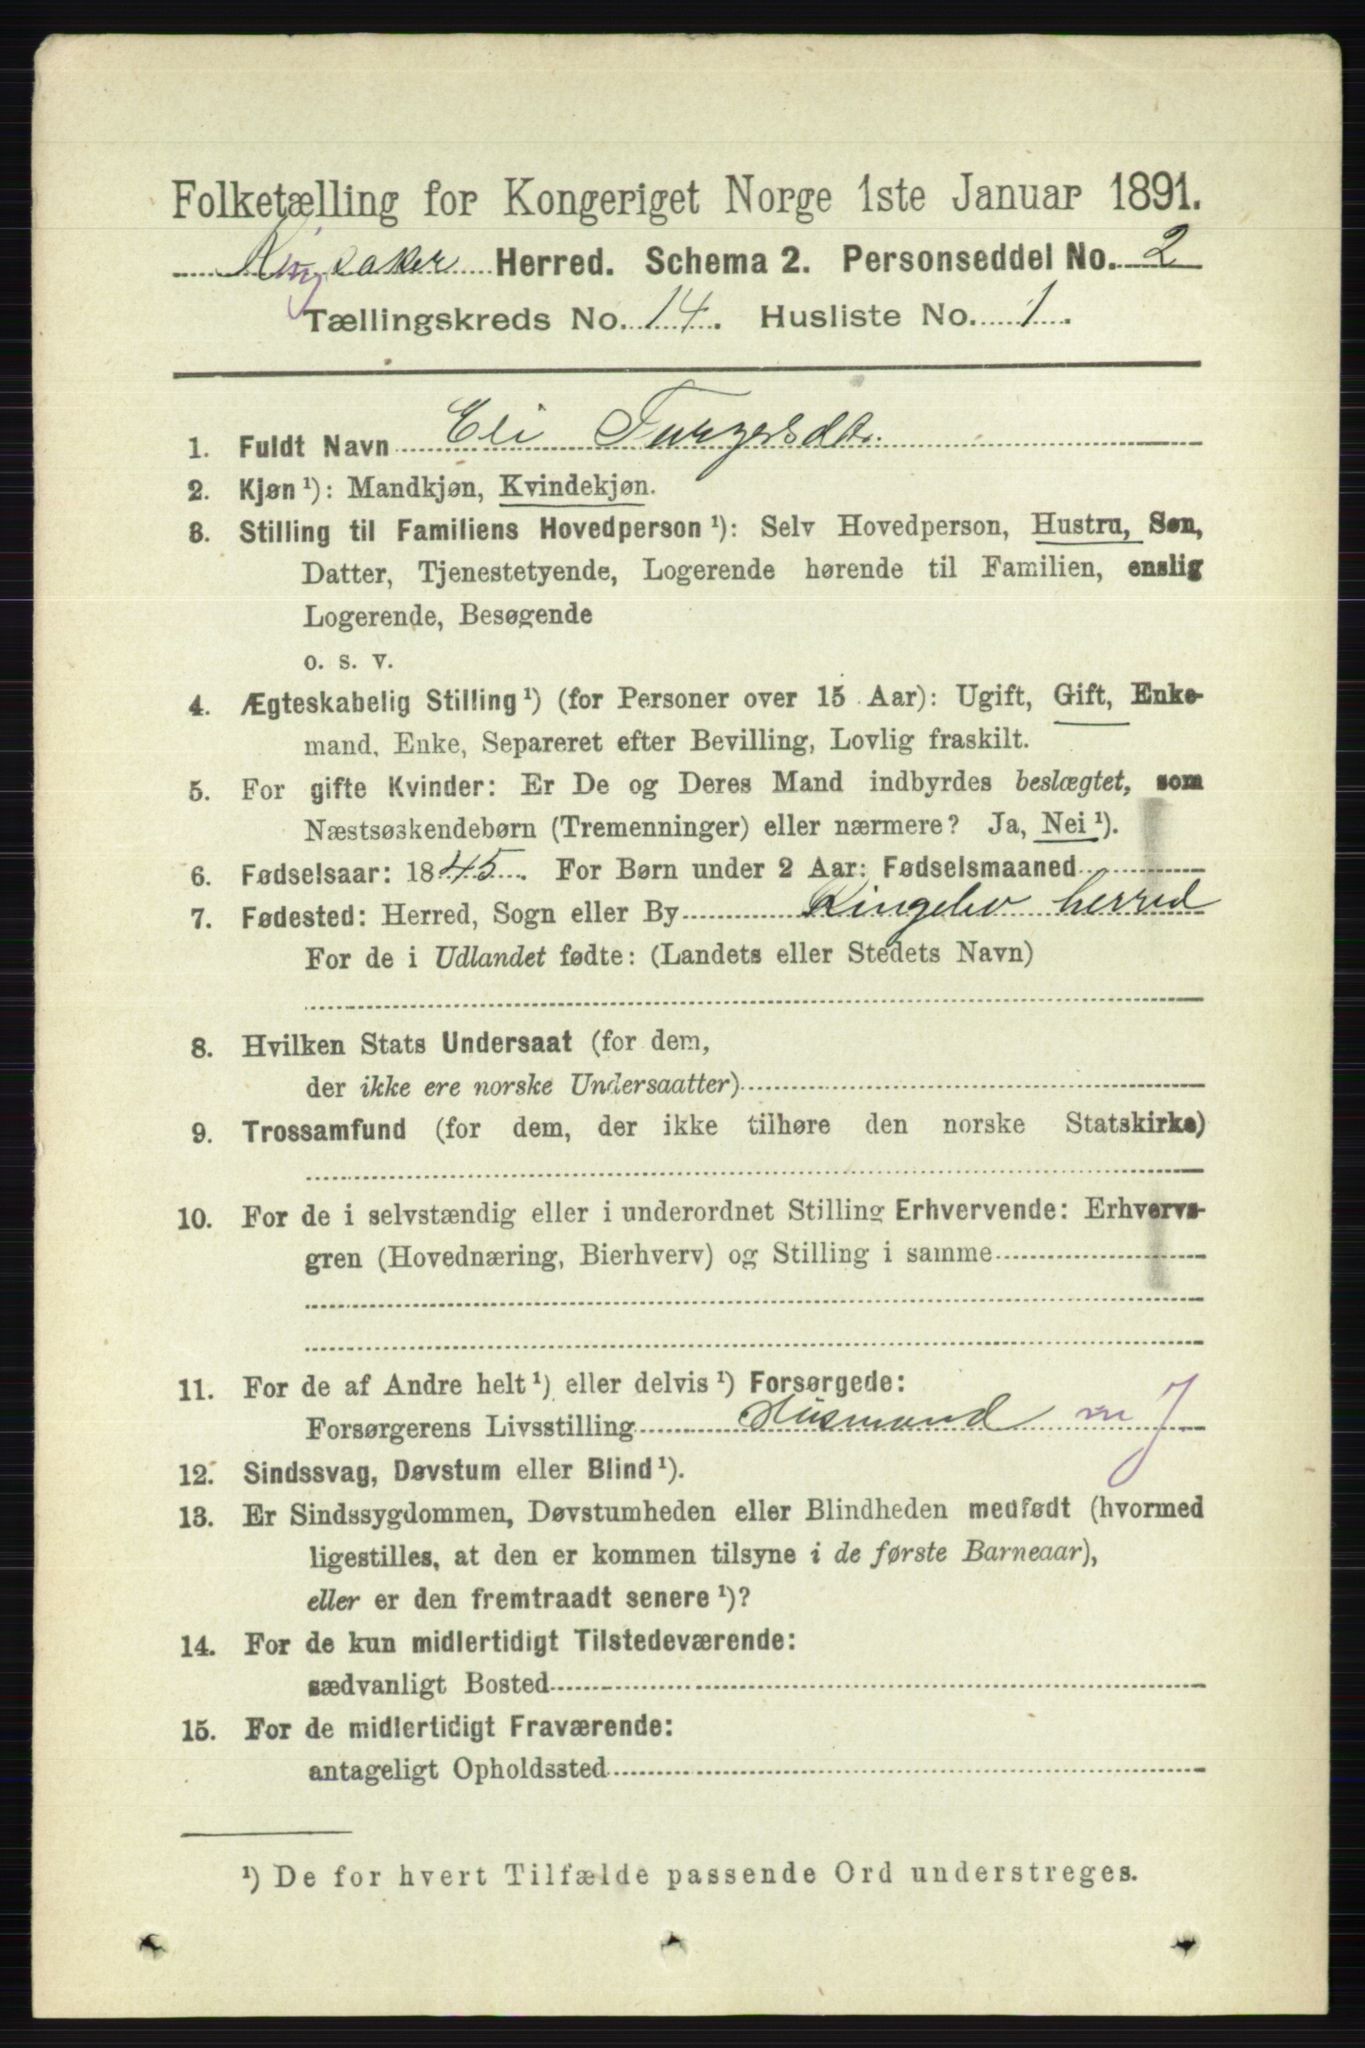 Folketælling for Kongeriget Norge 1ste Januar 1891.
Ringsaker Herred. Schema 2. Personseddel No. 2
Tællingskreds No. 14. Husliste No. 1.
1. Fuldt Navn Eli Turgersdtr.
2. Kjøn ¹): Mandkjøn, Kvindekjøn.
3. Stilling til Familiens Hovedperson ¹): Selv Hovedperson, Hustru, Søn,
Datter, Tjenestetyende, Logerende hørende til Familien, enslig
Logerende, Besøgende
o. s. v.
4. Ægteskabelig Stilling ¹) (for Personer over 15 Aar): Ugift, Gift, Enke-
mand, Enke, Separeret efter Bevilling, Lovlig fraskilt.
5. For gifte Kvinder: Er De og Deres Mand indbyrdes beslægtet, som
Næstsøskendebørn (Tremenninger) eller nærmere? Ja, Nei ¹).
6. Fødselsaar: 1845. For Børn under 2 Aar: Fødselsmaaned
7. Fødested: Herred, Sogn eller By Ringebo herred
For de i Udlandet fødte: (Landets eller Stedets Navn)
8. Hvilken Stats Undersaat (for dem,
der ikke ere norske Undersaatter)
9. Trossamfund (for dem, der ikke tilhøre den norske Statskirke)
10. For de i selvstændig eller i underordnet Stilling Erhvervende: Erhvervs-
gren (Hovednæring, Bierhverv) og Stilling i samme
11. For de af Andre helt ¹) eller delvis ¹) Forsørgede:
Forsørgerens Livsstilling Husmand m J
12. Sindssvag, Døvstum eller Blind ¹).
13. Er Sindssygdommen, Døvstumheden eller Blindheden medfødt (hvormed
ligestilles, at den er kommen tilsyne i de første Barneaar),
eller er den fremtraadt senere ¹)?
14. For de kun midlertidigt Tilstedeværende:
sædvanligt Bosted
15. For de midlertidigt Fraværende:
antageligt Opholdssted
¹) De for hvert Tilfælde passende Ord understreges.